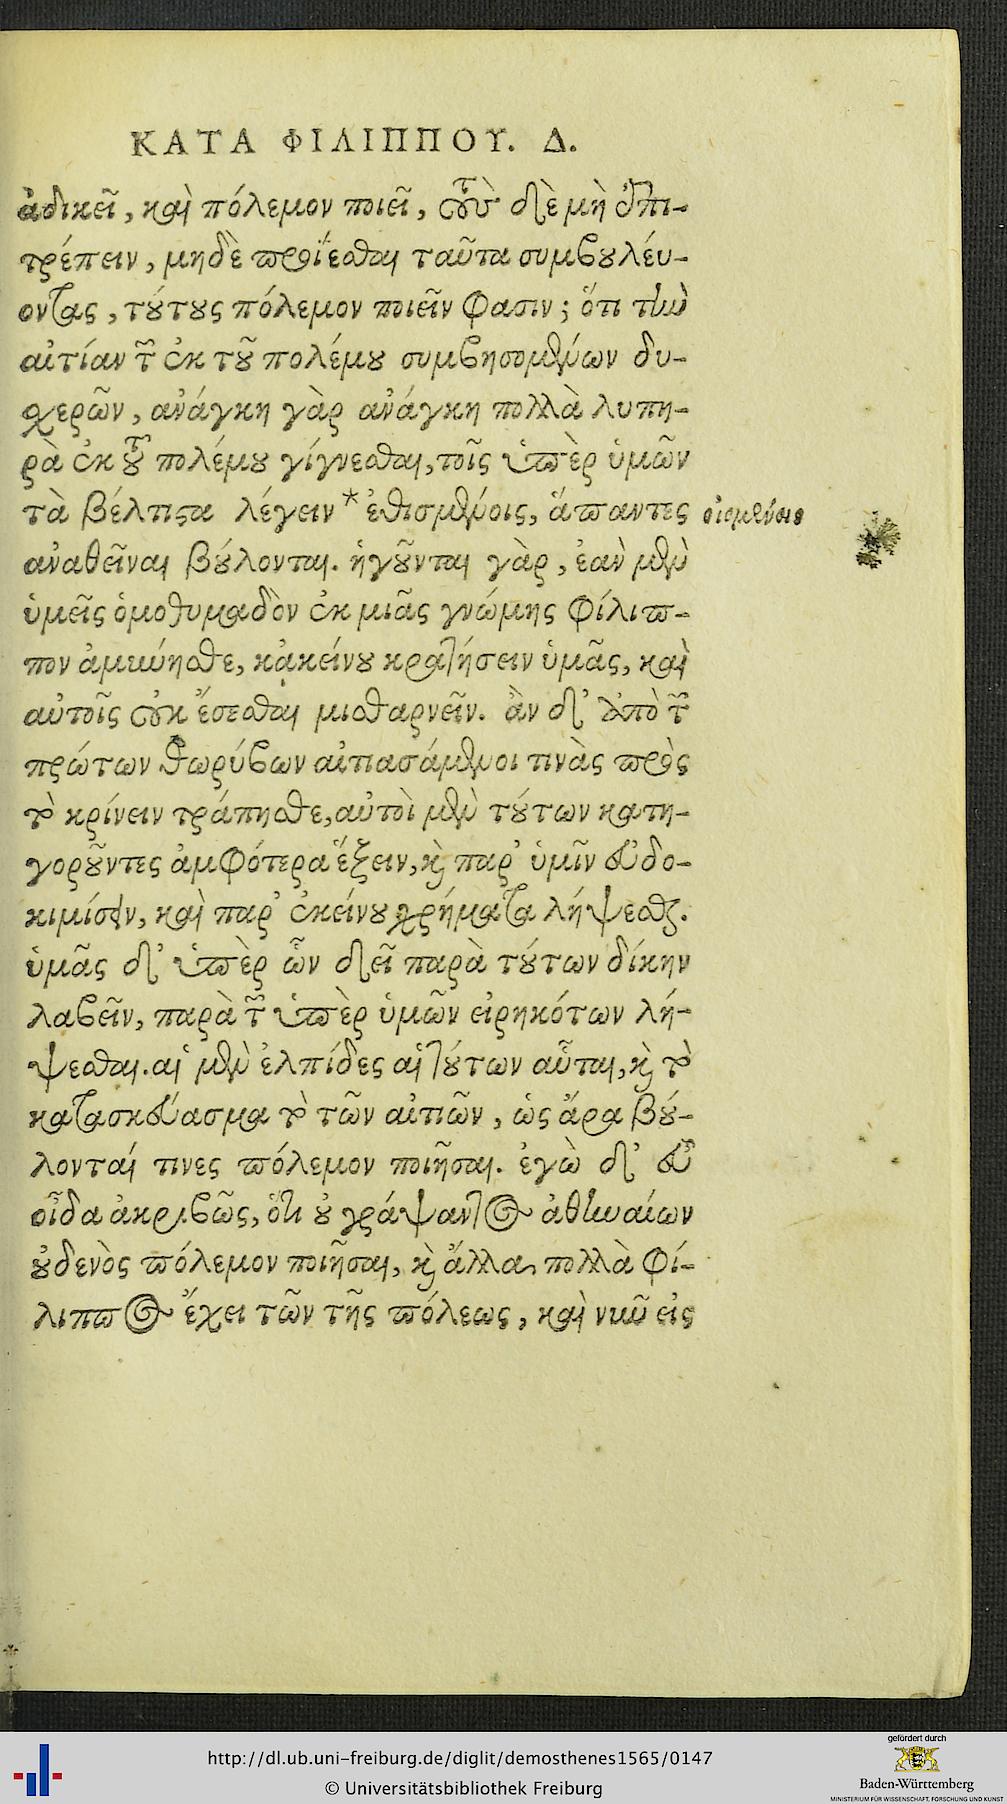 ΚΑΤΑ ΦΙΛΙΠΠΟΥ. Δ.
ἀδικεῖ, καὶ πόλεμον ποιεῖ, τοὺς δὲ μὴ ἐπι-
τρέπειν, μηδὲ προΐεσθαι ταῦτα συμβουλεύ-
οντας, τούτους πόλεμον ποιεῖν φασιν; ὅτι τὴν
αἰτίαν τῶν ἐκ τοῦ πολέμου συμβησομένων δυ-
χερῶν, ἀνάγκη γὰρ ἀνάγκη πολλὰ λυπη-
ρὰ ἐκ τοῦ πολέμου γίγνεσθαι, τοῖς ὑπὲρ ὑμῶν
τὰ βέλτιστα λέγειν * ἐθισμένοις, ἅπαντες οἰομένοις
ἀναθεῖναι βούλονται. ἡγοῦνται γὰρ, ἐὰν μὲν
ὑμεῖς ὁμοθυμαδὸν ἐκ μιᾶς γνώμης Φίλιπ-
πον ἀμύνησθε, κἀκείνου κρατήσειν ὑμᾶς, καὶ
αὐτοῖς οὐκ ἔσεσθαι μισθαρνεῖν. ἂν δ' ἀπὸ τῶν
πρώτων θωρύβων αἰτιασάμενοι τινὰς πρὸς
τὸ κρίνειν τράπησθε, αὐτοὶ μὲν τούτων κατη-
γοροῦντες ἀμφότερα ἕξειν, καὶ παρ' ὑμῖν εὐδο-
κιμίσειν, καὶ παρ' ἐκείνου χρήματα λήψεσθαι.
ὑμᾶς δ' ὑπὲρ ὧν δεῖ παρὰ τούτων δίκην
λαβεῖν, παρὰ τῶν ὑπὲρ ὑμῶν εἰρηκότων λή-
ψεσθαι. αἱ μὲν ἐλπίδες αἱ τούτων αὗται, καὶ τὸ
κατασκεύασμα τὸ τῶν αἰτιῶν, ὡς ἄρα βού-
λονταί τινες πόλεμον ποιῆσαι. ἐγὼ δ' εὖ
οἶδα ἀκριβῶς, ὅτι οὐ γράψαντος ἀθηναίων
οὐδενὸς πόλεμον ποιῆσαι, καὶ ἄλλα πολλὰ Φί-
λιππος ἔχει τῶν τῆς πόλεως, καὶ νῦν εἰς
http://dl.ub.uni-freiburg.de/diglit/demosthenes1565/0147
© Universitätsbibliothek Freiburg
gefördert durch
Baden-Württemberg
MINISTERIUM FÜR WISSENSCHAFT, FORSCHUNG UND KUNST